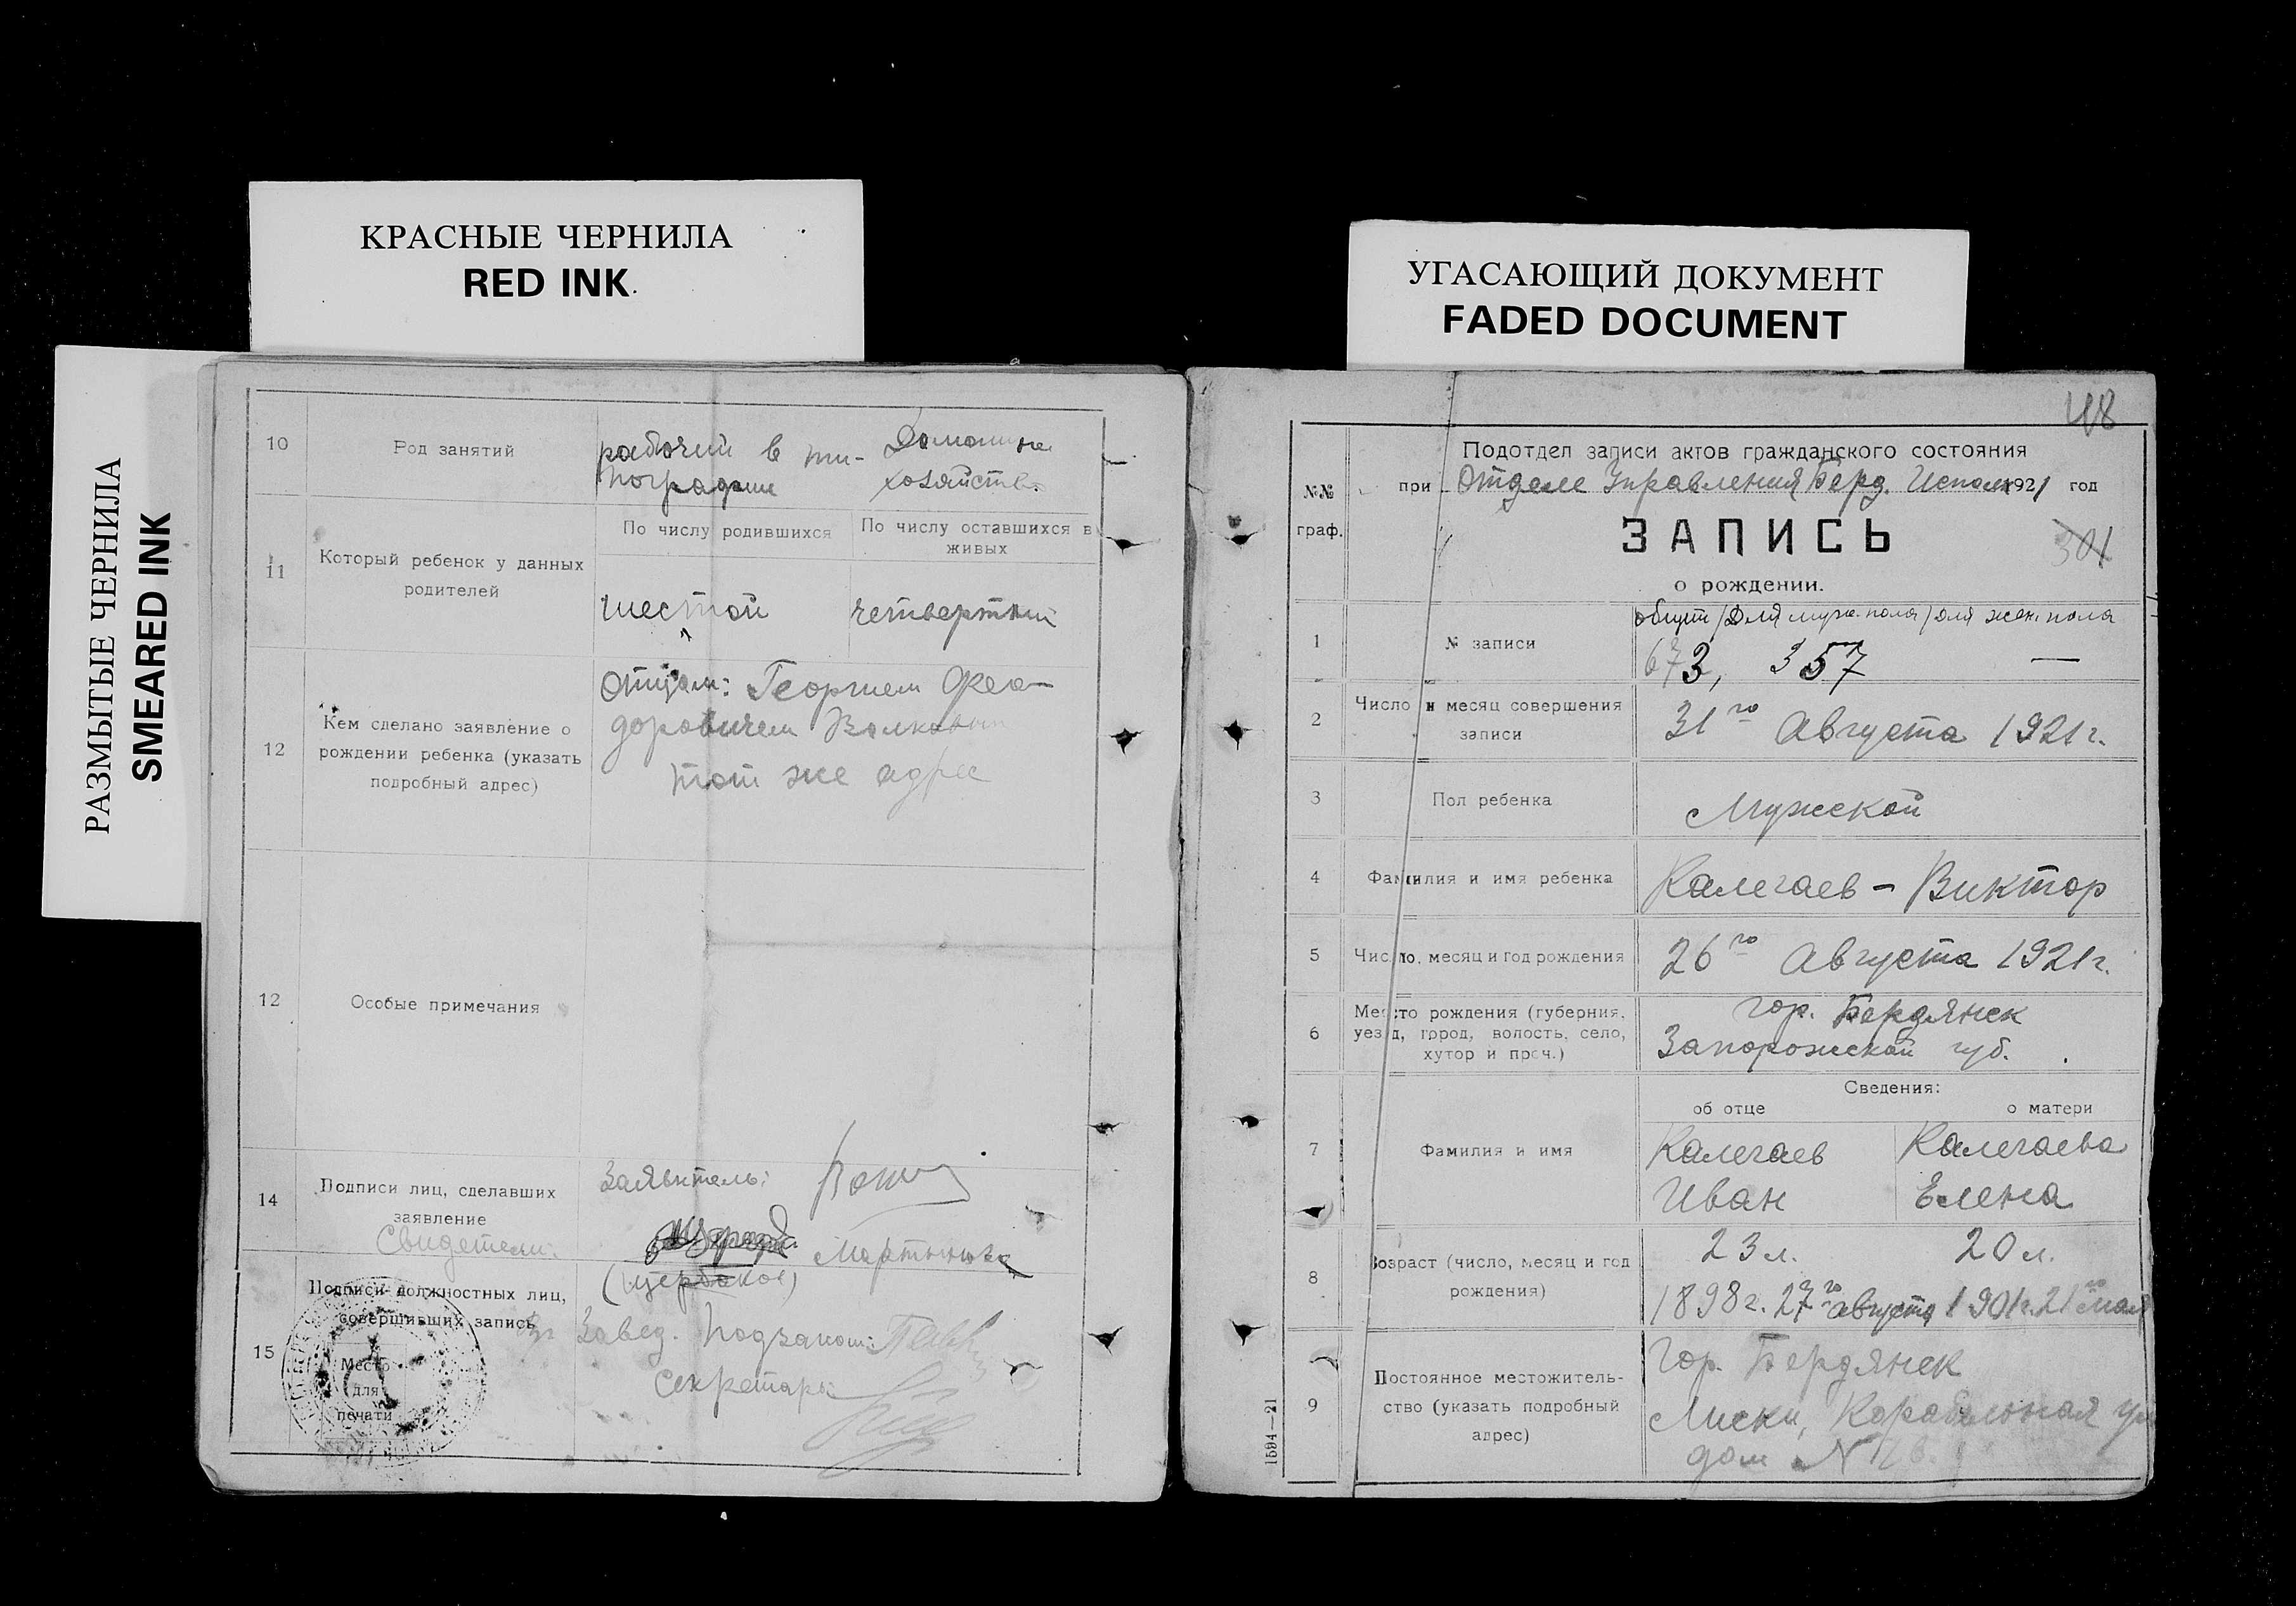 КРАСНЫЕ ЧЕРНИЛА
RED INK
УГАСАЮЩИЙ ДОКУМЕНТ
FADED DOCUMENT
РАЗМЫТЫЕ ЧЕРНИЛА
SMEARED INK
10
Род занятий
рабочий в ти-
пографии
Домашнее
хозяйство.
11
Который ребенок у данных
родителей
По числу родившихся
По числу оставшихся в
живых
шестой
четвертый
12
Кем сделано заявление о
рождении ребенка (указать
подробный адрес)
Отцом: Георгием Фео-
доровичем Волковым
тот же адрес
12
Особые примечания
14
Подписи лиц, сделавших
заявление
Свидетели:
Заявитель:
Мартынова
(Щербаков)
15
Подписи должностных лиц,
совершивших запись
Место
для
печати
Завед. Подзапот:
Секретарь
48
№№
граф.
Подотдел записи актов гражданского состояния
при Отделе Управления Берд. Исполк 1921 год
ЗАПИСЬ
о рождении.
301
1
№ записи
общий / Для муж. пола / Для жен. пола
673, 357 —
2
Число и месяц совершения
записи
31го Августа 1921 г.
3
Пол ребенка
Мужской
4
Фамилия и имя ребенка
Калегаев - Виктор
5
Число, месяц и год рождения
26го Августа 1921 г.
6
Место рождения (губерния,
уезд, город, волость, село,
хутор и проч.)
гор. Бердянск
Запорожской губ.
Сведения:
об отце
о матери
7
Фамилия и имя
Калегаев
Иван
Калегаева
Елена
8
Возраст (число, месяц и год
рождения)
23 л.
20 л.
1898 г. 27го августа
1901 г. 21го мая
9
Постоянное местожитель-
ство (указать подробный
адрес)
Гор. Бердянск
Лиски, Корабельная ул
дом №
1594—21